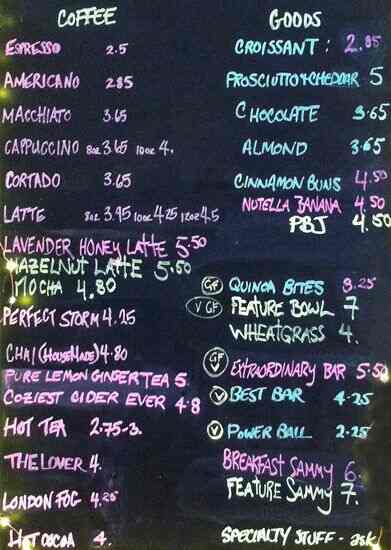 COFFEE
ESPRESSO 2.5
AMERICANO 2.85
MACCHIATO 3.65
CAPPUCCINO 8oz 3.65 10oz 4.
CORTADO 3.65
LATTE 8oz 3.95 10oz 4.25 12oz 4.5
LAVENDER HONEY LATTE 5.50
HAZELNUT LATTE 5.50
MOCHA 4.80
PERFECT STORM 4.25
CHAI (HOUSEMADE) 4.80
PURE LEMON GINGER TEA 5
COZIEST CIDER EVER 4.8
HOT TEA 2.75-3.
THE LOVER 4.
LONDON FOG 4.25
HOT COCOA 4.
GOODS
CROISSANT : 2.85
PROSCIUTTO + CHEDDAR 5
CHOCOLATE 3.65
ALMOND 3.65
CINNAMON BUNS 4.50
NUTELLA BANANA 4.50
PBJ 4.50
GF QUINOA BITES 3.25
V GF FEATURE BOWL 7
WHEATGRASS 4.
GF V EXTRAORDINARY BAR 5.50
V BEST BAR 4.25
V POWER BALL 2.25
BREAKFAST SAMMY 6.
FEATURE SAMMY 7.
SPECIALTY STUFF - ask